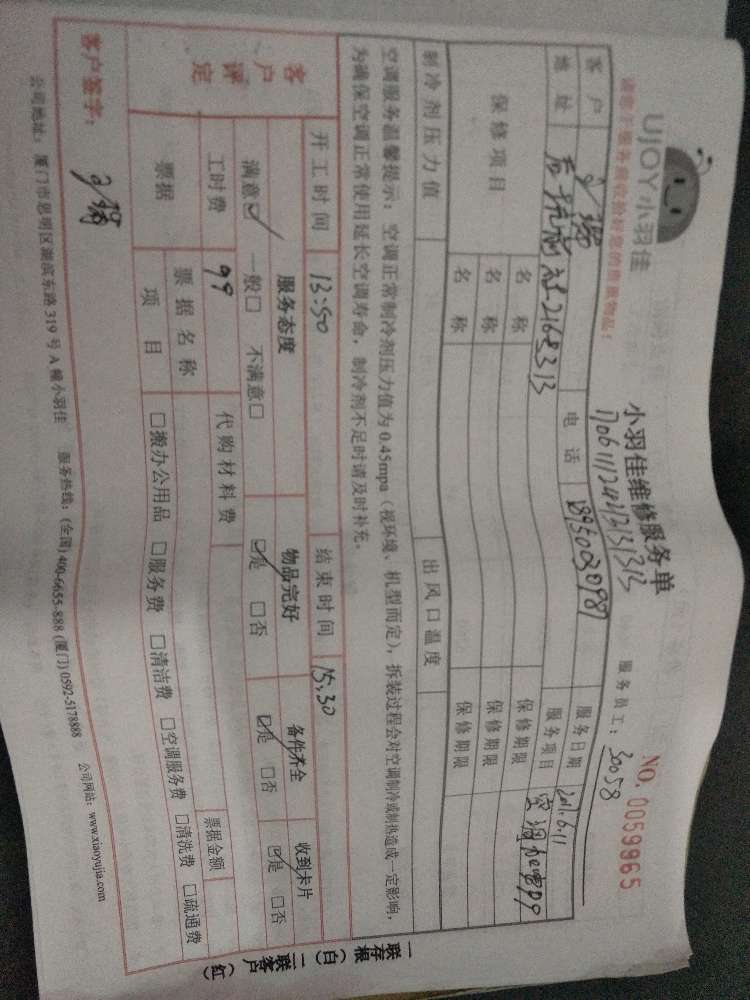 UJOY小羽佳
小羽佳维修服务单
NO. 0059965
请您于服务前收拾好您的贵重物品！
170611124212131313
服务员工： 30058
客户
电话 18950030987 服务日期 2017.6.11
地址 2168313 服务项目 空调加雪种
保修项目 名称 保修期限
名称 保修期限
名称 保修期限
制冷剂压力值 出风口温度
空调服务温馨提示：空调正常制冷剂压力值为0.45mpa（视环境、机型而定），拆装过程会对空调制冷或制热造成一定影响，
为确保空调正常使用延长空调寿命，制冷剂不足时请及时补充。
开工时间 13:50 结束时间 15:30
客户评定
服务态度 物品完好 备件齐全 收到卡片
满意☑ 一般□ 不满意□ ☑是 □否 ☑是 □否 ☑是 □否
工时费 99 代购材料费
票据 票据名称 票据金额
项目 □搬办公用品 □服务费 □清洁费 □空调服务费 □清洗费 □疏通费
客户签字：
公司地址：厦门市思明区湖滨东路319号A幢小羽佳 服务热线：(全国)400-6655-888 (厦门)0592-5178888 公司网站：www.xiaoyujia.com
一联存根（白）二联客户（红）